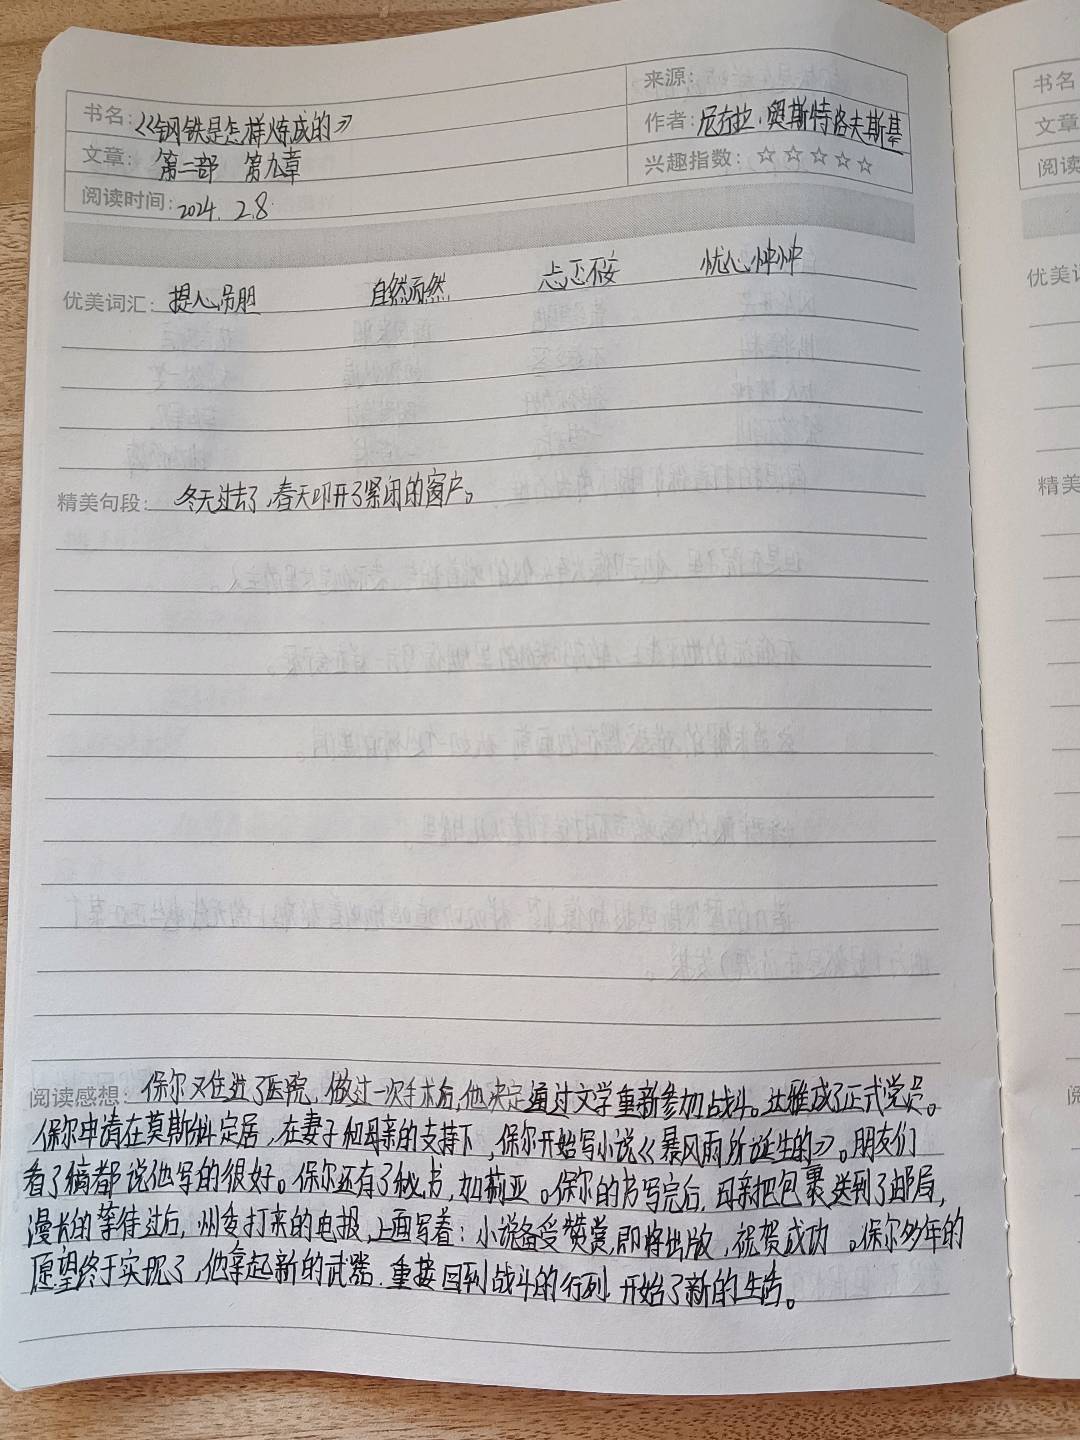 来源:
书名:《钢铁是怎样炼成的》
作者:尼古拉·奥斯特洛夫斯基
文章: 第二部 第九章
兴趣指数:☆☆☆☆☆
阅读时间:2024. 2.8.
优美词汇: 提心吊胆 自然而然 忐忑不安 忧心忡忡
精美句段: 冬天过去了,春天叩开了紧闭的窗户。
阅读感想: 保尔又住进了医院,做过一次手术后,他决定通过文学重新参加战斗。达雅成了正式党员。
保尔申请在莫斯科定居,在妻子和母亲的支持下,保尔开始写小说《暴风雨所诞生的》。朋友们
看了稿都说他写的很好。保尔还有了秘书,加莉亚。保尔的书写完后,母亲把包裹送到了邮局,
漫长的等待过后,州委打来的电报,上面写着:小说备受赞赏,即将出版,祝贺成功。保尔多年的
愿望终于实现了,他拿起新的武器.重接回到战斗的行列,开始了新的生活。
书名
文章
阅读
优美词
精美